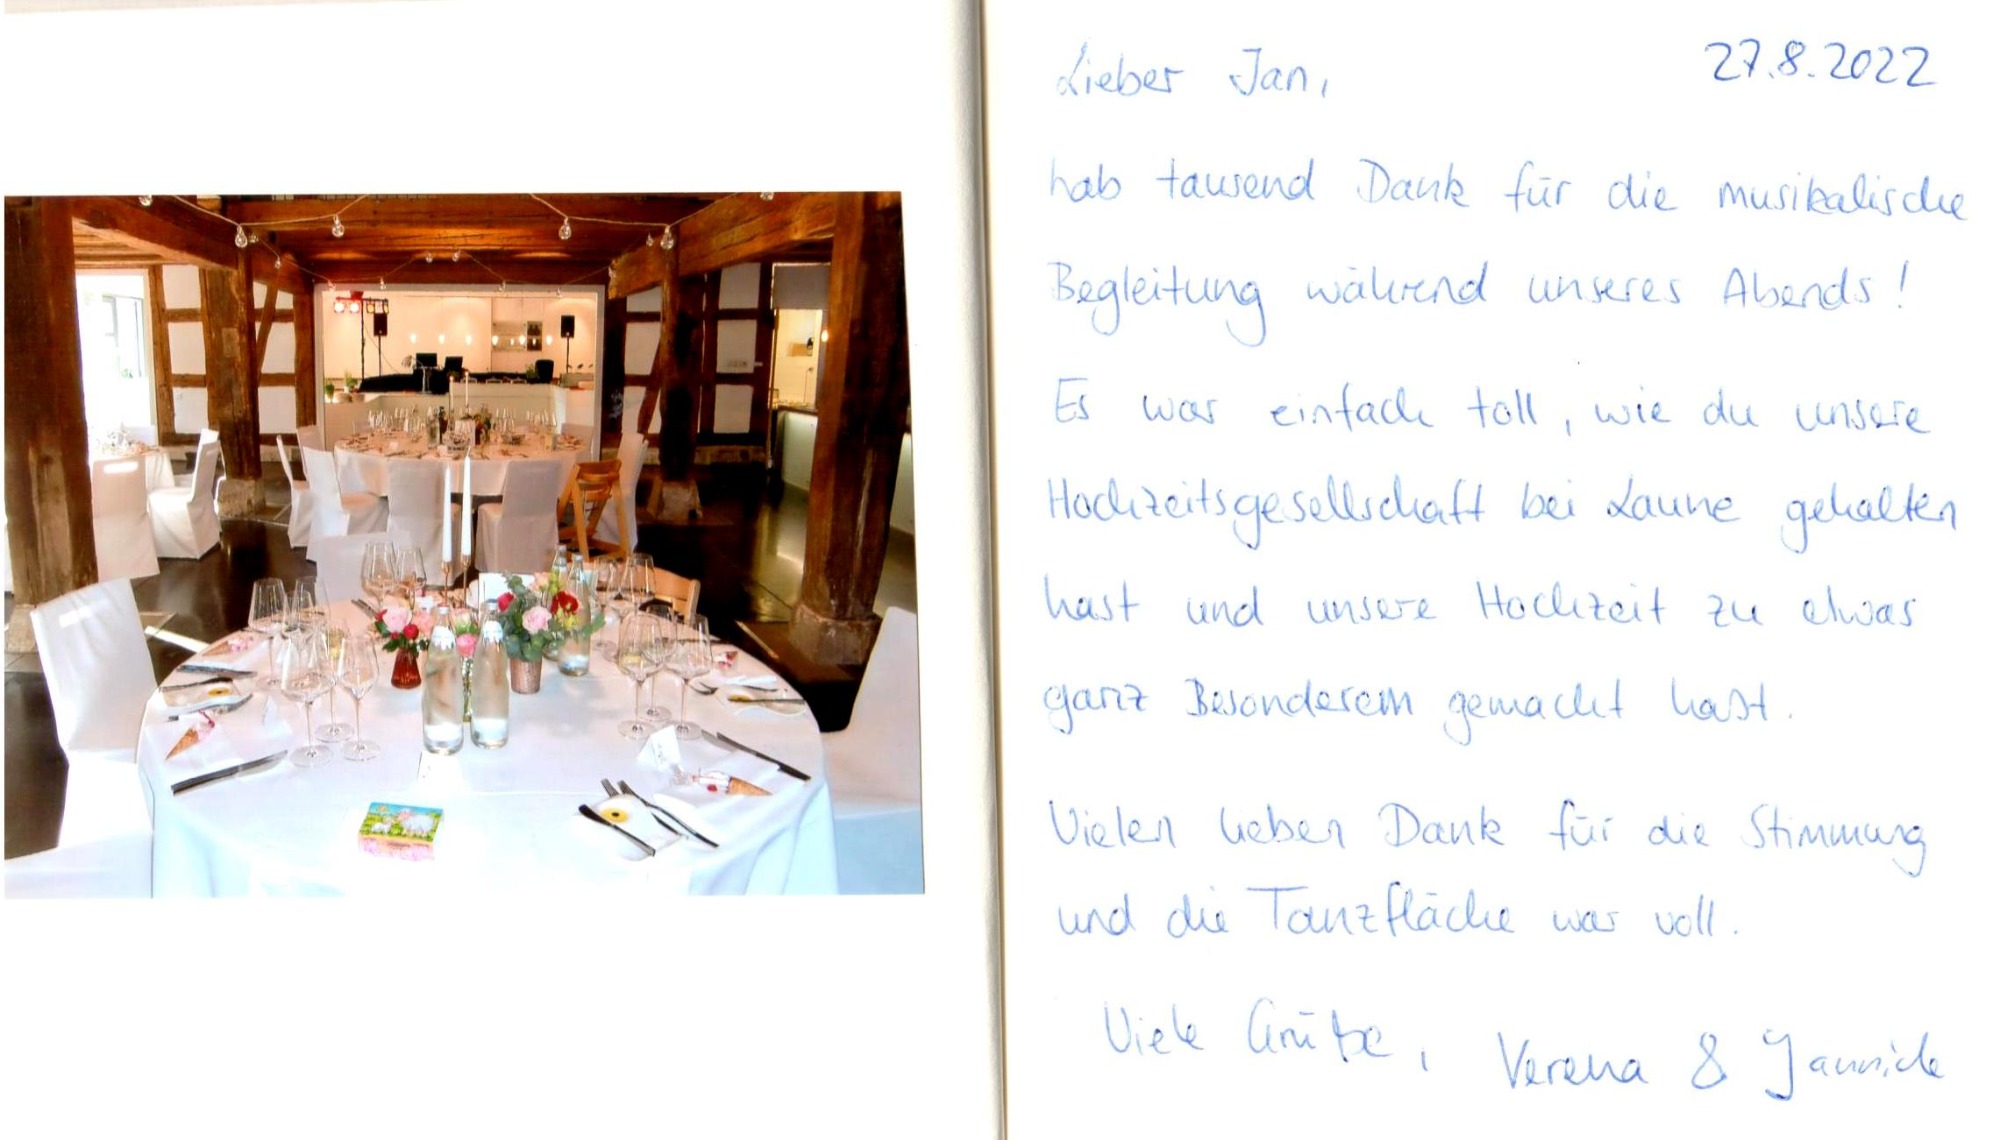 Lieber Jan, 27.8.2022
hab tausend Dank für die musikalische
Begleitung während unseres Abends!
Es war einfach toll, wie du unsere
Hochzeitsgesellschaft bei Laune gehalten
hast und unsere Hochzeit zu etwas
ganz Besonderem gemacht hast.
Vielen lieben Dank für die Stimmung
und die Tanzfläche war voll.
Viele Grüße, Verena & Yannick